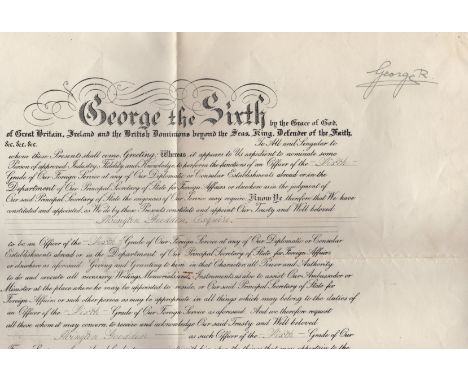 George R
George the Sixth by the Grace of God,
of Great Britain, Ireland and the British Dominions beyond the Seas, King, Defender of the Faith,
&c. &c. &c. To All and Singular to
whom these Presents shall come, Greeting. Whereas it appears to Us expedient to nominate some
Person of approved Industry, Fidelity and Knowledge to perform the functions of an Officer of the Sixth
Grade of Our Foreign Service at any of Our Diplomatic or Consular Establishments abroad or in the
Department of Our Principal Secretary of State for Foreign Affairs or elsewhere as in the judgment of
Our said Principal Secretary of State the exigences of Our Service may require. Know Ye therefore that We have
constituted and appointed, as We do by these Presents constitute and appoint Our Trusty and Well beloved
Abington Gooden, Esquire
to be an Officer of the Sixth Grade of Our Foreign Service at any of Our Diplomatic or Consular
Establishments abroad or in the Department of Our Principal Secretary of State for Foreign Affairs
or elsewhere as aforesaid. Giving and Granting to him in that Character all Power and Authority
to do and execute all necessary Writings, Memorials and Instruments as also to assist Our Ambassador or
Minister at the place where he may be appointed to reside, or Our said Principal Secretary of State for
Foreign Affairs or such other person as may be appropriate in all things which may belong to the duties of
an Officer of the Sixth Grade of Our Foreign Service as aforesaid. And we therefore request
all those whom it may concern, to receive and acknowledge Our said Trusty and Well beloved
Abington Gooden as such Officer of the Sixth Grade of Our